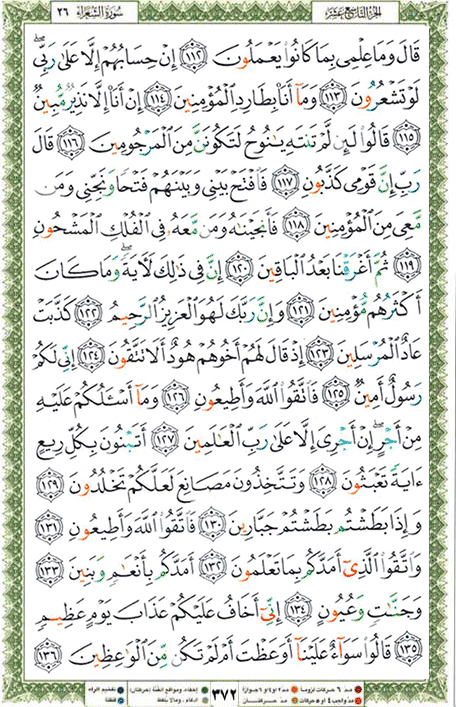 الجزء التاسع عشر سورة الشعراء ٢٦
قَالَ وَمَا عِلْمِى بِمَا كَانُوا۟ يَعْمَلُونَ ١١٢ إِنْ حِسَابُهُمْ إِلَّا عَلَىٰ رَبِّى
لَوْ تَشْعُرُونَ ١١٣ وَمَآ أَنَا۠ بِطَارِدِ ٱلْمُؤْمِنِينَ ١١٤ إِنْ أَنَا۠ إِلَّا نَذِيرٌ مُّبِينٌ
١١٥ قَالُوا۟ لَئِن لَّمْ تَنتَهِ يَـٰنُوحُ لَتَكُونَنَّ مِنَ ٱلْمَرْجُومِينَ ١١٦ قَالَ
رَبِّ إِنَّ قَوْمِى كَذَّبُونِ ١١٧ فَٱفْتَحْ بَيْنِى وَبَيْنَهُمْ فَتْحًا وَنَجِّنِى وَمَن
مَّعِىَ مِنَ ٱلْمُؤْمِنِينَ ١١٨ فَأَنجَيْنَـٰهُ وَمَن مَّعَهُۥ فِى ٱلْفُلْكِ ٱلْمَشْحُونِ
١١٩ ثُمَّ أَغْرَقْنَا بَعْدُ ٱلْبَاقِينَ ١٢٠ إِنَّ فِى ذَٰلِكَ لَـَٔايَةً ۖ وَمَا كَانَ
أَكْثَرُهُم مُّؤْمِنِينَ ١٢١ وَإِنَّ رَبَّكَ لَهُوَ ٱلْعَزِيزُ ٱلرَّحِيمُ ١٢٢ كَذَّبَتْ
عَادٌ ٱلْمُرْسَلِينَ ١٢٣ إِذْ قَالَ لَهُمْ أَخُوهُمْ هُودٌ أَلَا تَتَّقُونَ ١٢٤ إِنِّى لَكُمْ
رَسُولٌ أَمِينٌ ١٢٥ فَٱتَّقُوا۟ ٱللَّهَ وَأَطِيعُونِ ١٢٦ وَمَآ أَسْـَٔلُكُمْ عَلَيْهِ
مِنْ أَجْرٍ ۖ إِنْ أَجْرِىَ إِلَّا عَلَىٰ رَبِّ ٱلْعَـٰلَمِينَ ١٢٧ أَتَبْنُونَ بِكُلِّ رِيعٍ
ءَايَةً تَعْبَثُونَ ١٢٨ وَتَتَّخِذُونَ مَصَانِعَ لَعَلَّكُمْ تَخْلُدُونَ ١٢٩
وَإِذَا بَطَشْتُم بَطَشْتُمْ جَبَّارِينَ ١٣٠ فَٱتَّقُوا۟ ٱللَّهَ وَأَطِيعُونِ ١٣١
وَٱتَّقُوا۟ ٱلَّذِىٓ أَمَدَّكُم بِمَا تَعْلَمُونَ ١٣٢ أَمَدَّكُم بِأَنْعَـٰمٍ وَبَنِينَ ١٣٣
وَجَنَّـٰتٍ وَعُيُونٍ ١٣٤ إِنِّىٓ أَخَافُ عَلَيْكُمْ عَذَابَ يَوْمٍ عَظِيمٍ
١٣٥ قَالُوا۟ سَوَآءٌ عَلَيْنَآ أَوَعَظْتَ أَمْ لَمْ تَكُن مِّنَ ٱلْوَٰعِظِينَ ١٣٦
مد ٦ حركات لزوماً مد ٢ او ٤ او ٦ جوازاً
٣٧٢
إخفاء، ومواقع الغنة (حركتان) تفخيم الراء
مد واجب ٤ او ٥ حركات مد حركتان
إدغام، وما لا يلفظ قلقلة